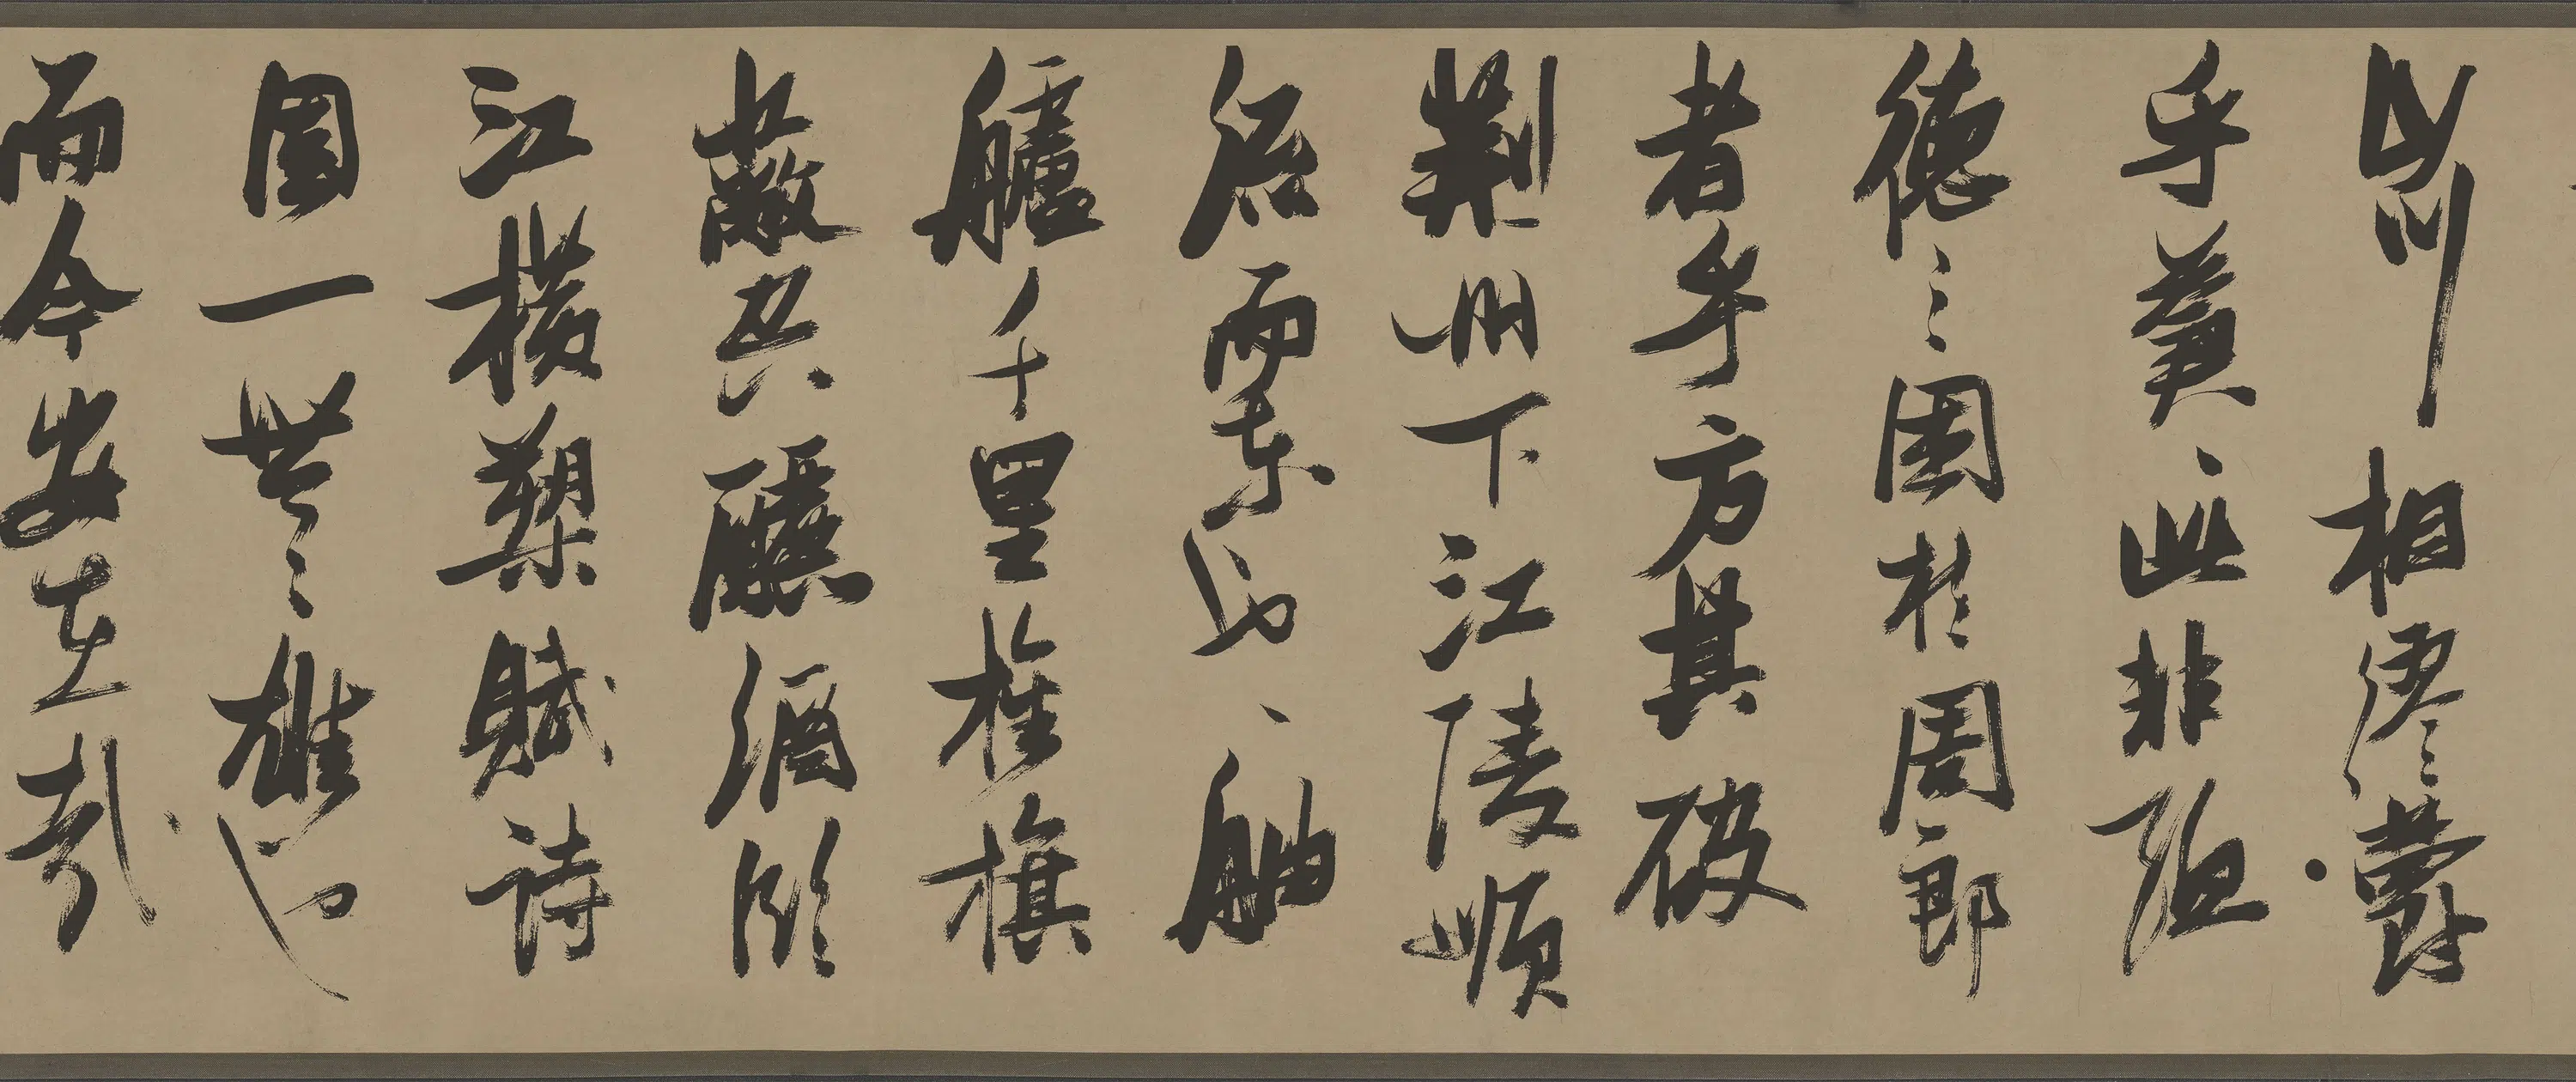 山川相繆鬱
乎蒼々此非孟
德之困於周郎
者乎方其破
荆州下江陵順
流而東也舳
艫千里旌旗
蔽空釃酒臨
江橫槊賦詩
固一世之雄也
而今安在哉